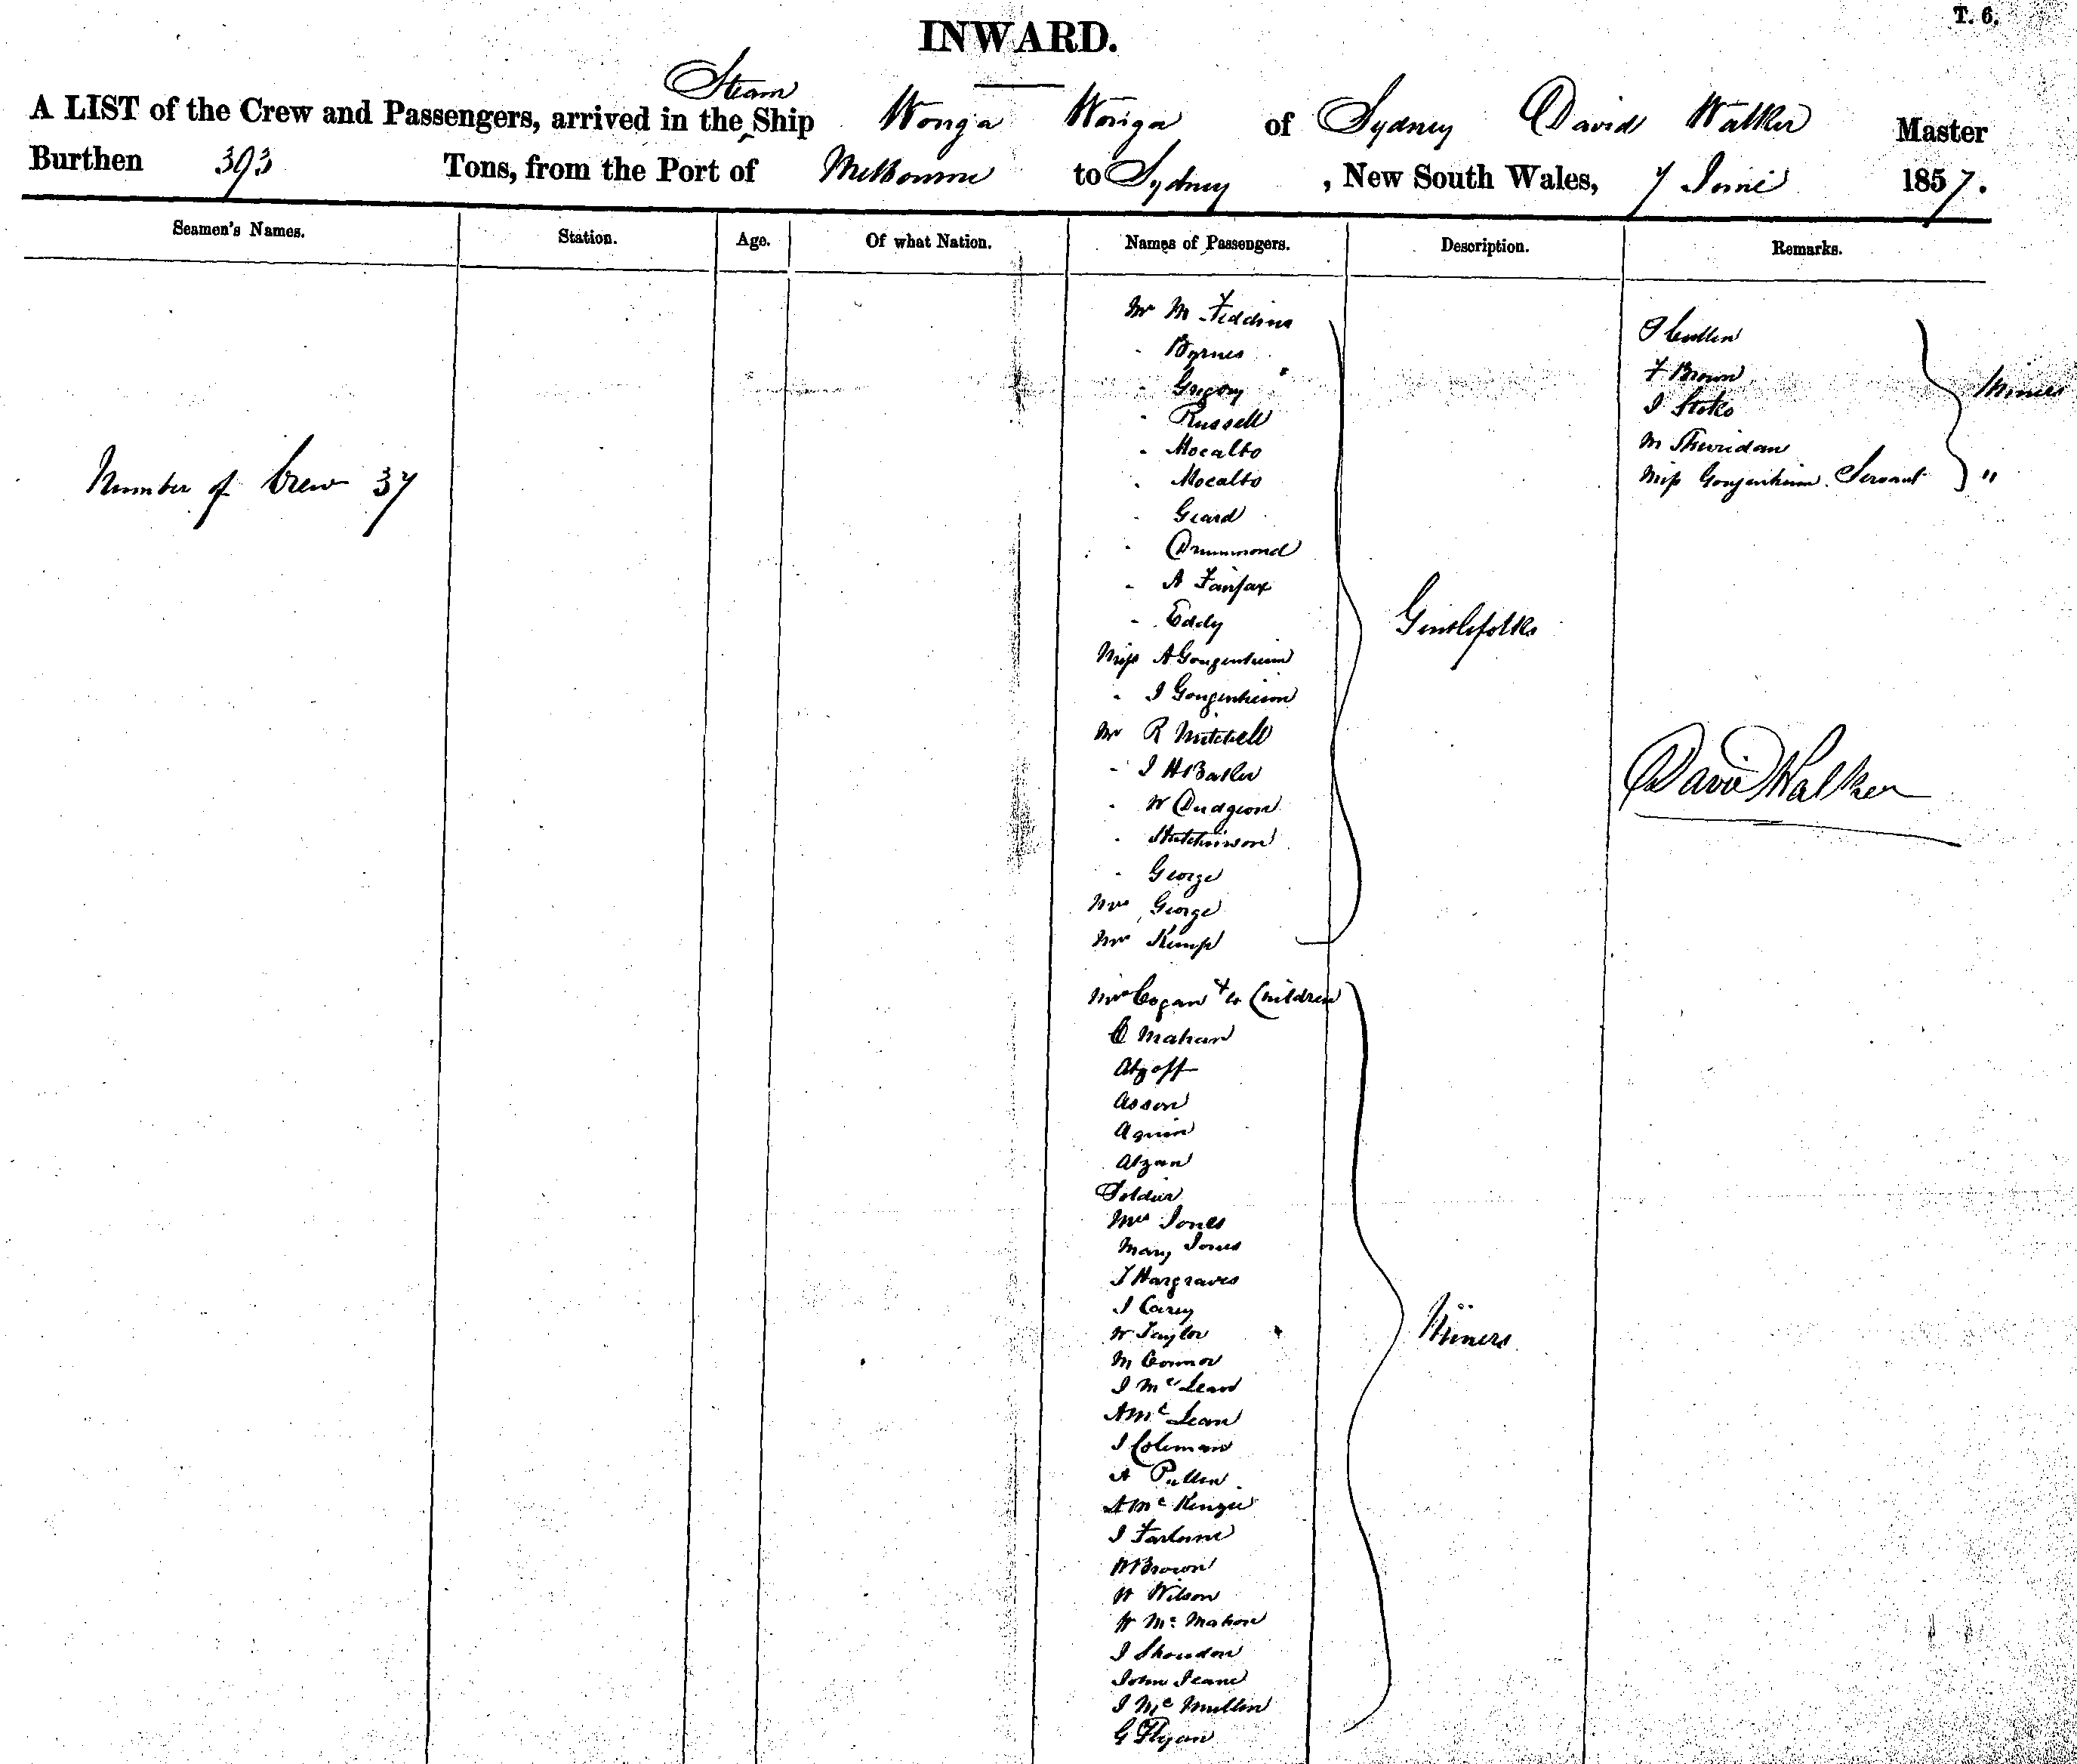 T. 6.
INWARD.
A LIST of the Crew and Passengers, arrived in the Steam Ship Wonga Wonga of Sydney David Walker Master
Burthen 393 Tons, from the Port of Melbourne to Sydney, New South Wales, 7 June 1857.
Seamen's Names. Station. Age. Of what Nation. Names of Passengers. Description. Remarks.
Number of Crew 37
Mr M
" Byrnes
" Gregory
" Russell
" Mocalto
" Mocalto
" Geard
" Drummond
" A Fairfax
" Eddy
Miss A Gougenheim
" J Gougenheim
Mr R Mitchell
" J H Barker
" W Dudgeon
" Hutchinson
" George
Mrs George
Mr Kemp
Gentlefolks
Mrs Cogan & Children
Mahan
Atzoff
Asson
Aguin
Atzan
Soldier
Mrs Jones
Mary Jones
J Hargraves
J Carey
W Taylor
M Connor
J McLean
A McLean
J Coleman
A Pullen
A McKenzie
J
W Brown
H Wilson
H McMahon
J
John
J McMullen
G Flynn
Miners
J Cullen
F Brown
J Stoke
M Sheridan
Miss Gougenheim Servant "
Miners
David Walker